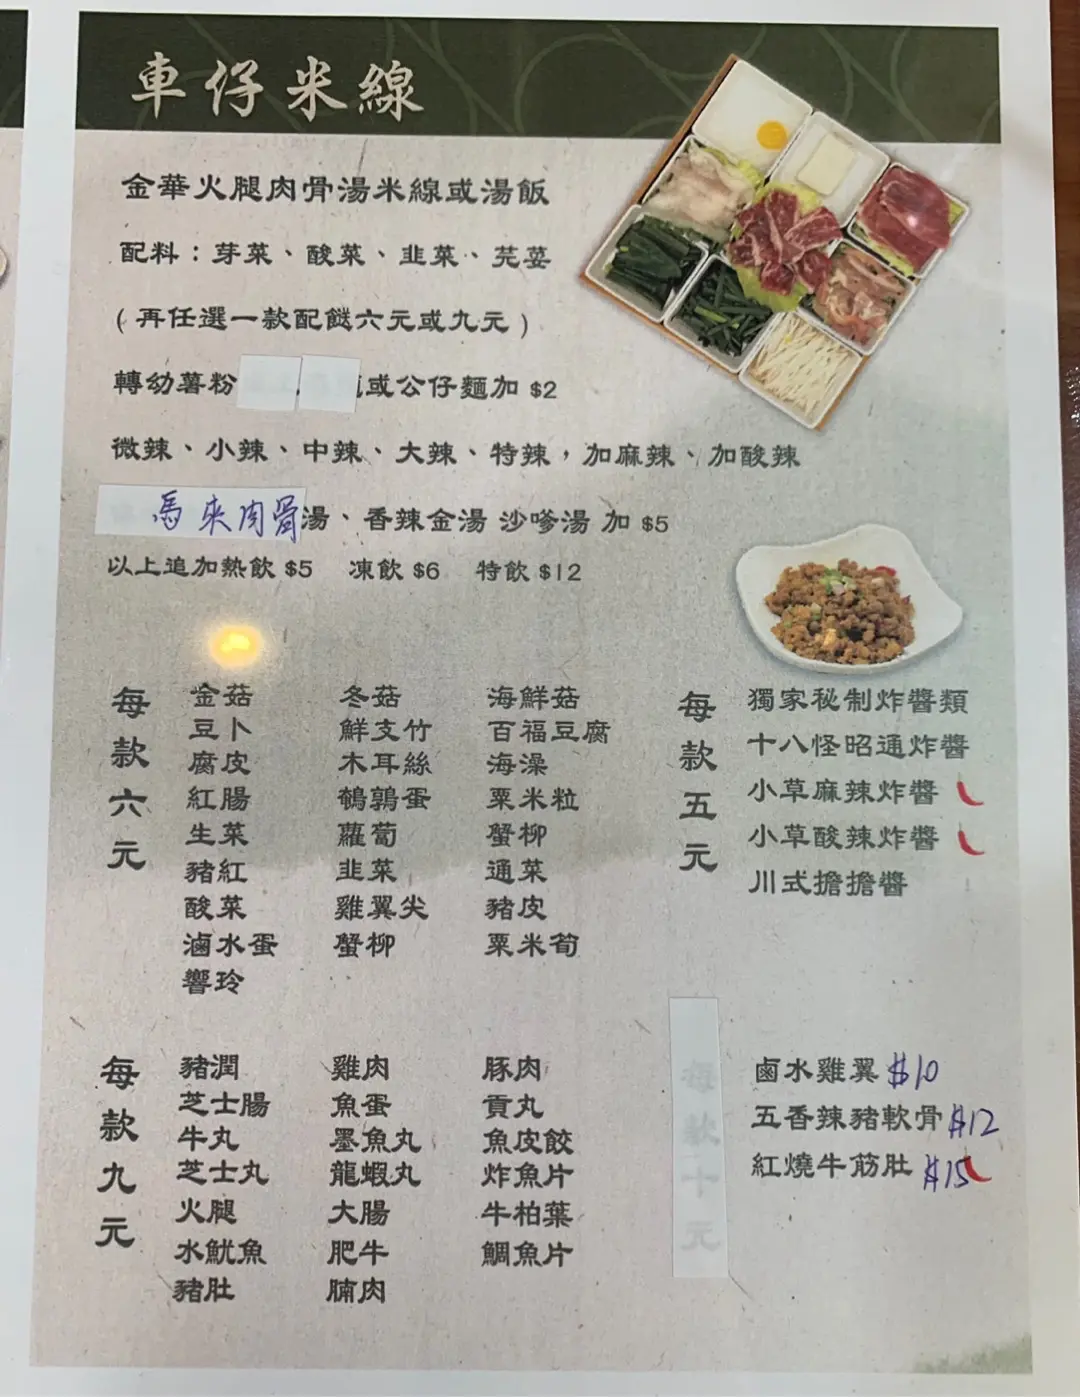 車仔米線
金華火腿肉骨湯米線或湯飯
配料：芽菜、酸菜、韭菜、芫荽
（再任選一款配餸六元或九元）
轉幼薯粉 或公仔麵加 $2
微辣、小辣、中辣、大辣、特辣，加麻辣、加酸辣
馬來肉骨湯、香辣金湯 沙嗲湯 加 $5
以上追加熱飲 $5 凍飲 $6 特飲 $12
每款六元
金菇 冬菇 海鮮菇
豆卜 鮮支竹 百福豆腐
腐皮 木耳絲 海澡
紅腸 鵪鶉蛋 粟米粒
生菜 蘿蔔 蟹柳
豬紅 韭菜 通菜
酸菜 雞翼尖 豬皮
滷水蛋 蟹柳 粟米荀
響玲
每款五元
獨家秘制炸醬類
十八怪昭通炸醬
小草麻辣炸醬
小草酸辣炸醬
川式擔擔醬
每款九元
豬潤 雞肉 豚肉
芝士腸 魚蛋 貢丸
牛丸 墨魚丸 魚皮餃
芝士丸 龍蝦丸 炸魚片
火腿 大腸 牛柏葉
水魷魚 肥牛 鯛魚片
豬肚 腩肉
每款十元
鹵水雞翼 $10
五香辣豬軟骨 $12
紅燒牛筋肚 $15